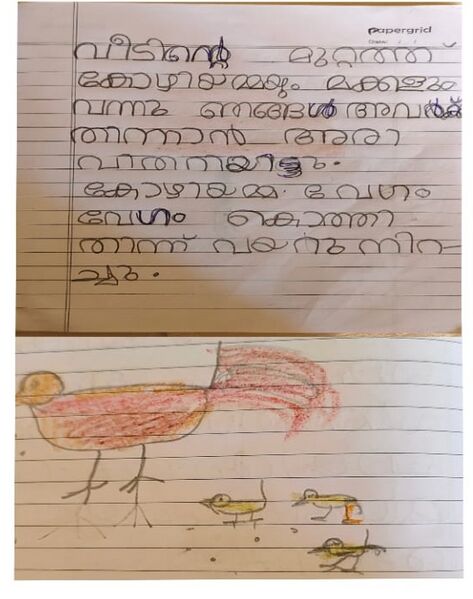 papergrid
വീടിന്റെ മുറ്റത്ത്
കോഴിയമ്മയും മക്കളും
വന്നു ഞങ്ങൾ അവർക്ക്
തിന്നാൻ അരി
വിതറിയിട്ടു.
കോഴിയമ്മ വേഗം
വേഗം കൊത്തി
തിന്ന് വയറു നിറ-
ച്ചു.